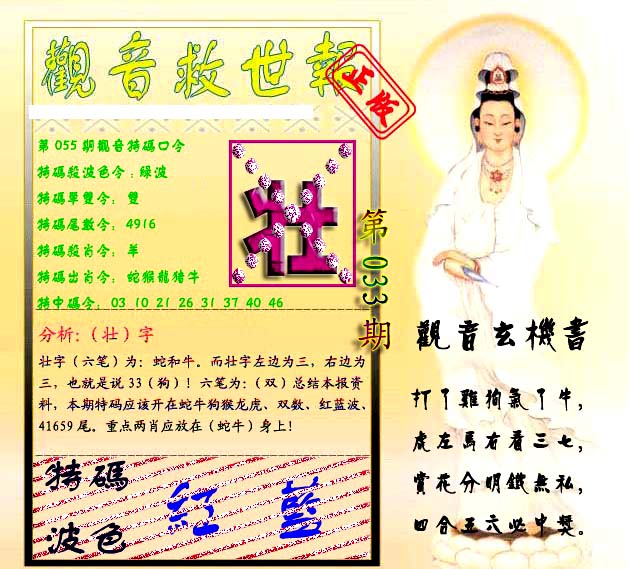 觀音救世報
正版
第 055 期觀音特碼口令
特碼殺波色令：綠波
特碼單雙令： 雙
特碼尾數令： 4916
特碼殺肖令： 羊
特碼出肖令： 蛇猴龍猪牛
特中碼令： 03 10 21 26 31 37 40 46
壮
第 033 期
分析:（壮）字
壮字（六笔）为：蛇和牛。而壮字左边为三，右边为
三，也就是说 33（狗）！六笔为：（双）总结本报资
料，本期特码应该开在蛇牛狗猴龙虎、双数、红蓝波、
41659 尾。重点两肖应放在（蛇牛）身上！
特碼
波色
紅 藍
觀音玄機書
打了雞狗氣了牛，
虎左馬右看三七，
賞花分明鐵無私，
四合五六必中獎。